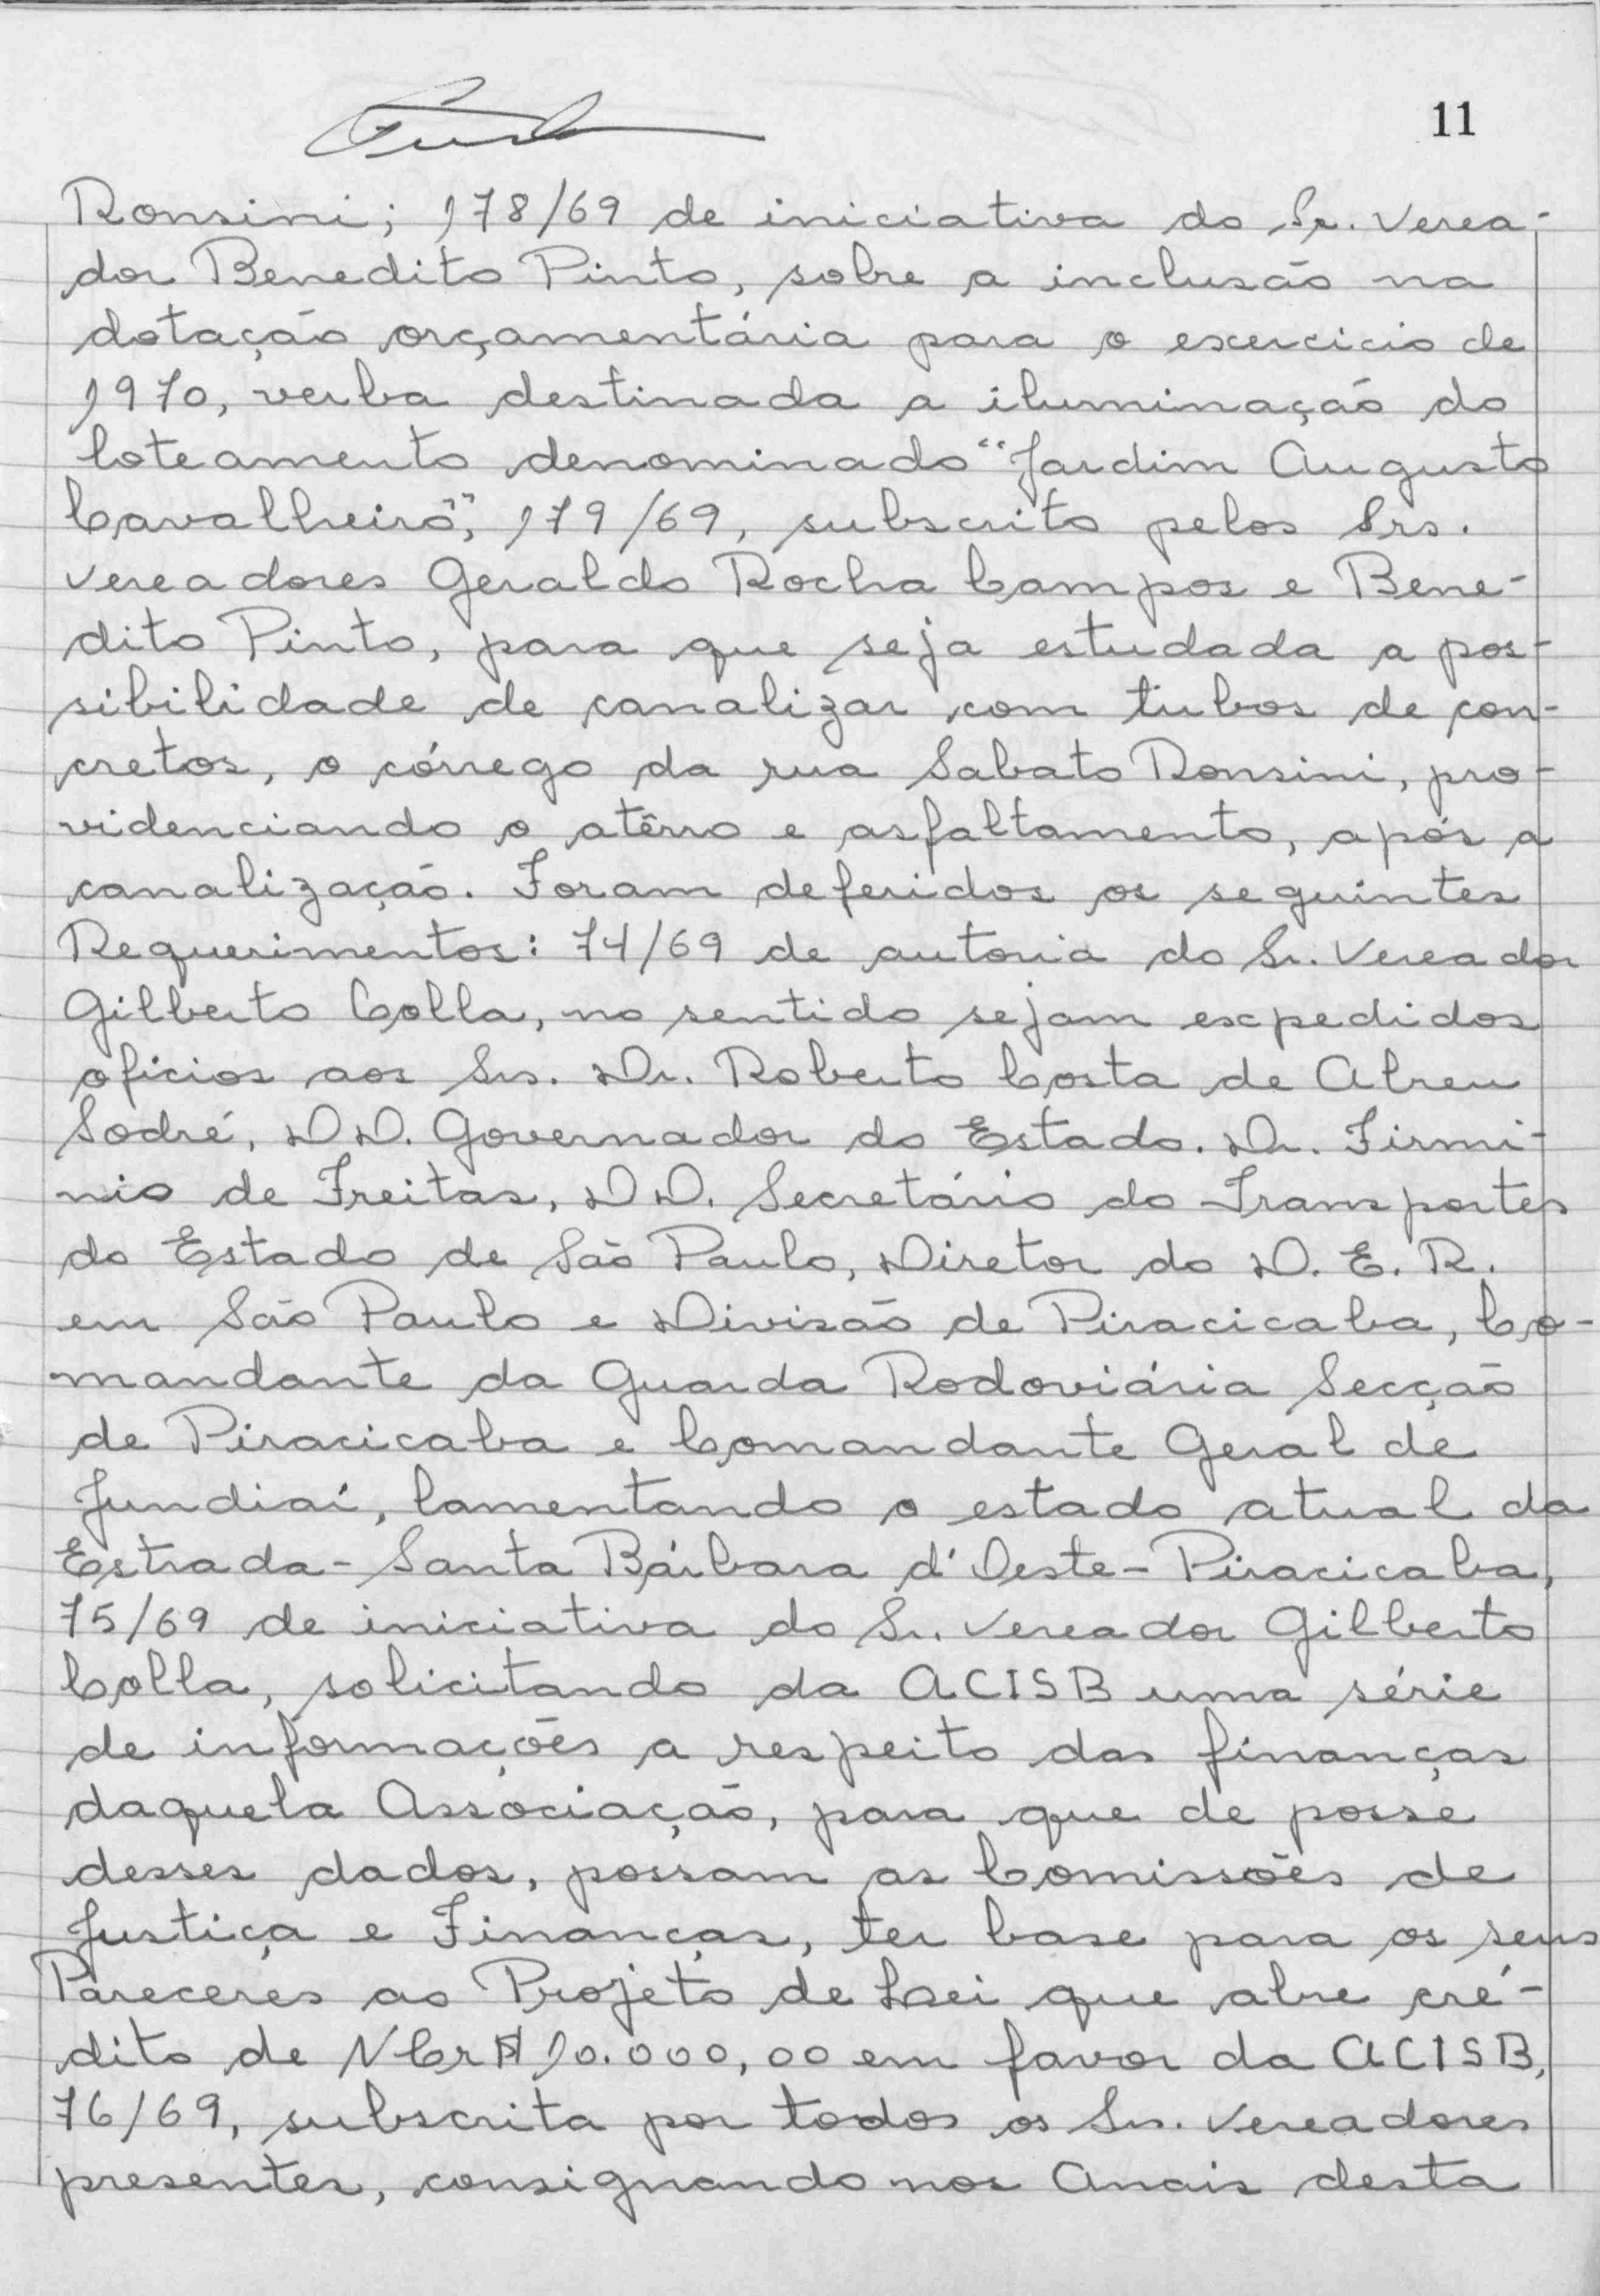 11
Ronsini; 178/69 de iniciativa do Sr. Verea-
dor Benedito Pinto, sobre a inclusão na
dotação orçamentária para o exercicio de
1970, verba destinada a iluminação do
loteamento denominado "Jardim Augusto
Cavalheiro", 179/69, subscrito pelos Srs.
Vereadores Geraldo Rocha Campos e Bene-
dito Pinto, para que seja estudada a pos-
sibilidade de canalizar com tubos de con-
cretos, o córrego da rua Sabato Ronsini, pro-
videnciando o atêrro e asfaltamento, após a
canalização. Foram deferidos os seguintes
Requerimentos: 74/69 de autoria do Sr. Vereador
Gilberto Colla, no sentido sejam expedidos
oficios aos Srs. Dr. Roberto Costa de Abreu
Sodré, DD. Governador do Estado. Dr. Firmi-
nio de Freitas, DD. Secretário do Transportes
do Estado de São Paulo, Diretor do D. E. R.
em São Paulo e Divisão de Piracicaba, Co-
mandante da Guarda Rodoviária Secção
de Piracicaba e Comandante Geral de
Jundiaí, lamentando o estado atual da
Estrada - Santa Bárbara d'Oeste - Piracicaba,
75/69 de iniciativa do Sr. Vereador Gilberto
Colla, solicitando da ACISB uma série
de informações a respeito das finanças
daquela Associação, para que de posse
desses dados, possam as Comissões de
Justiça e Finanças, ter base para os seus
Pareceres ao Projeto de Lei que abre cré-
dito de NCr$ 10.000,00 em favor da ACISB,
76/69, subscrita por todos os Srs. Vereadores
presentes, consignando nos Anais desta